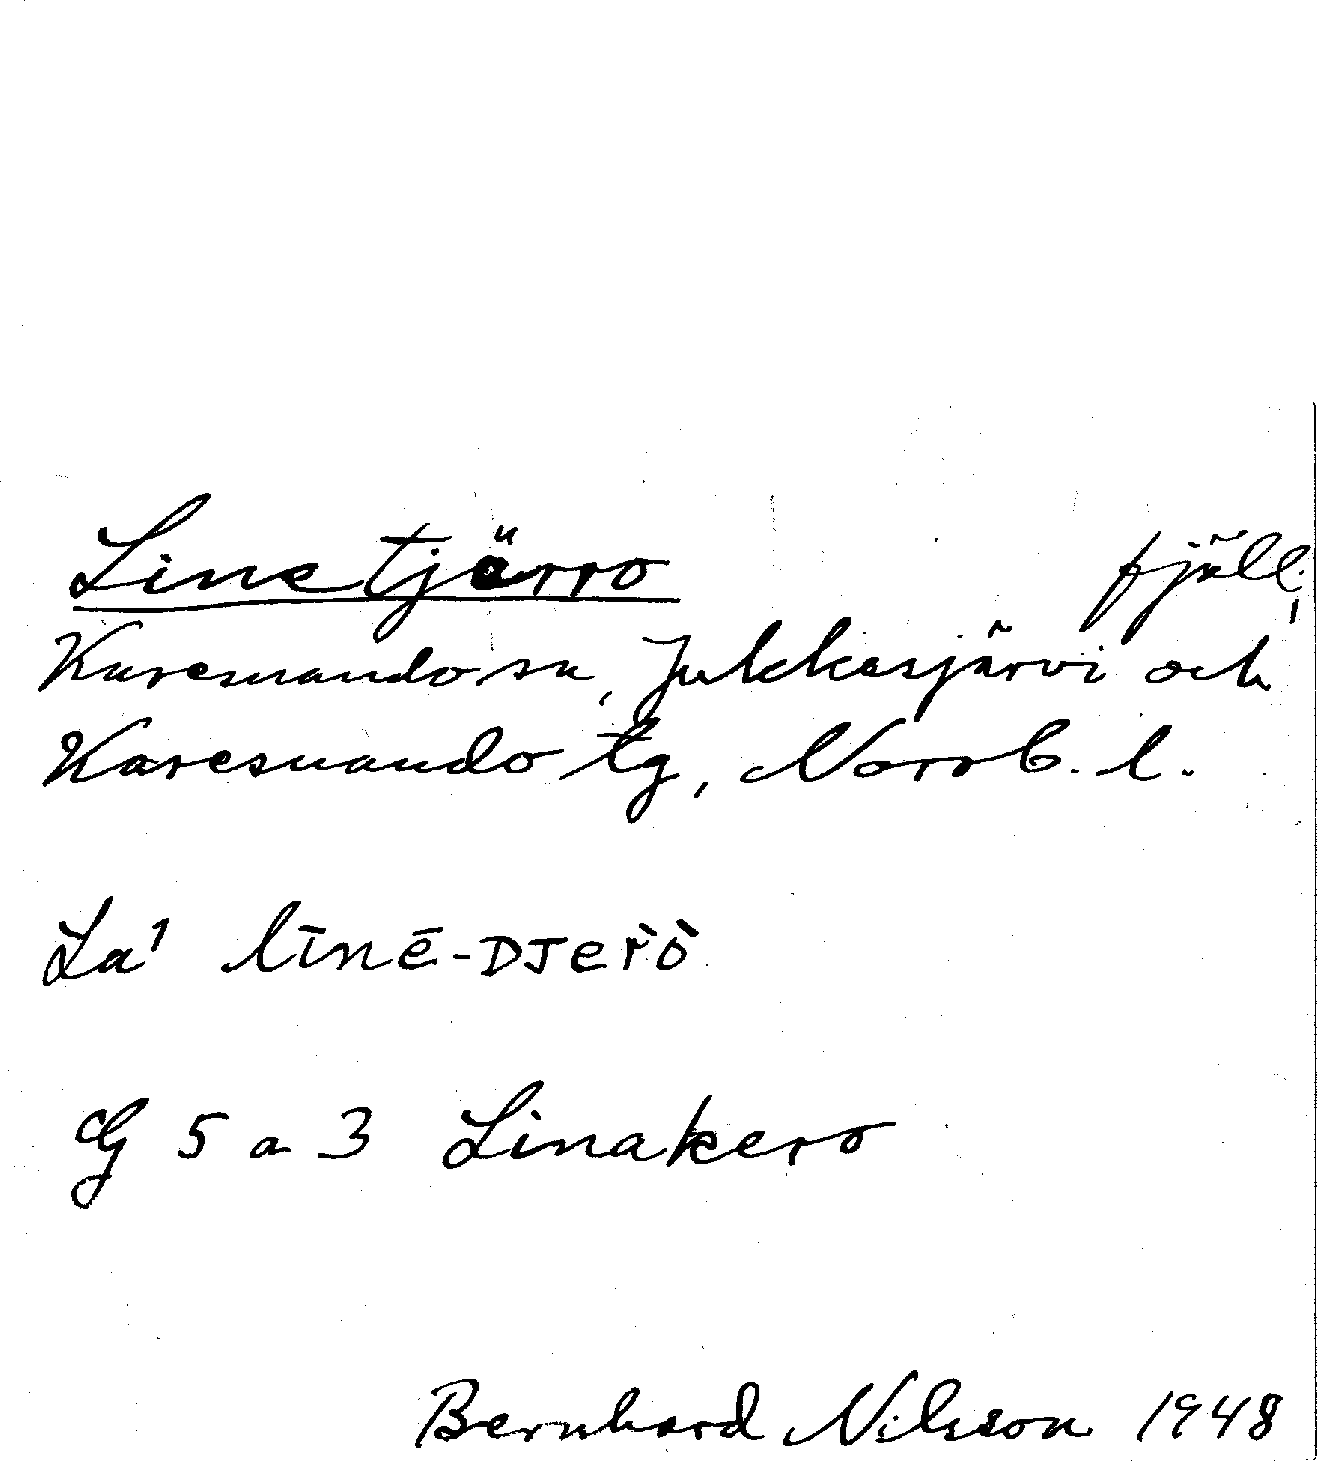 Linetjärro fjäll,
Karesuando sn, Jukkasjärvi och
Karesuando tg, Norrb. l.
La¹ līnē-ᴅᴊer̀ò
G 5 a 3 Linakero
Bernhard Nilsson 1948